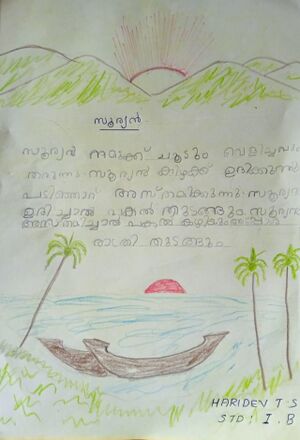 സൂര്യൻ
സൂര്യൻ നമുക്ക് ചൂടും വെളിച്ചവും
തരുന്നു. സൂര്യൻ കിഴക്ക് ഉദിക്കുന്നു
പടിഞ്ഞാറ് അസ്തമിക്കുന്നു. സൂര്യൻ
ഉദിച്ചാൽ പകൽ തുടങ്ങും. സൂര്യൻ
അസ്തമിച്ചാൽ പകൽ കഴിയും
രാത്രി തുടങ്ങും.
HARIDEV T.S
STD: I.B